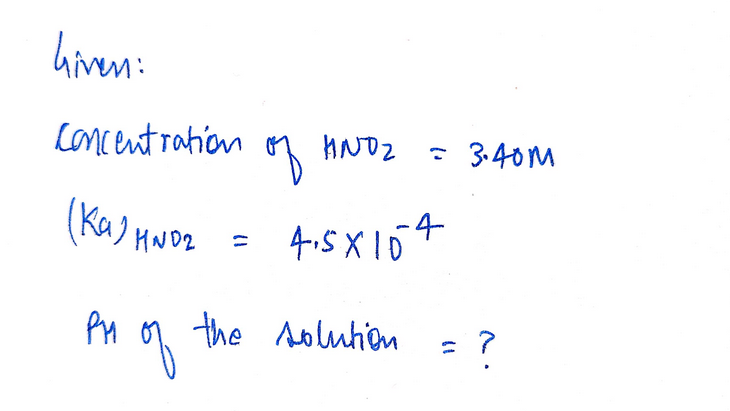 Given:
Concentration of HNO2 = 3.40M
(Ka) HNO2 = 4.5 X 10^-4
PH of the solution = ?